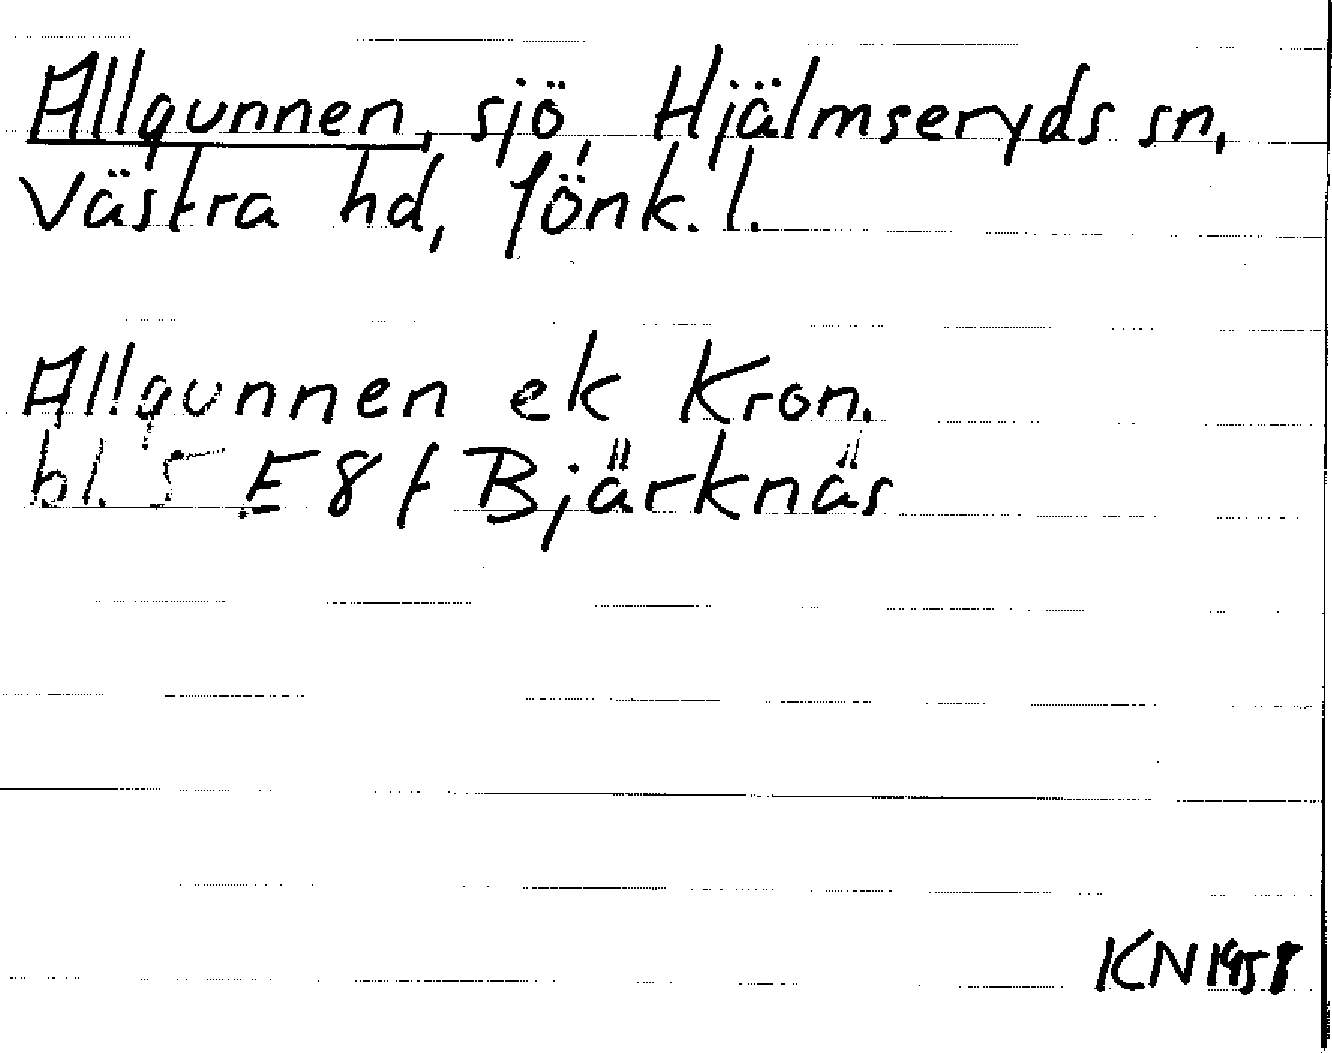 Allgunnen, sjö, Hjälmseryds sn,
Västra hd, Jönk. l.
Allgunnen ek Kron.
bl. 5 E 8 f Bjärknäs
KN 1958